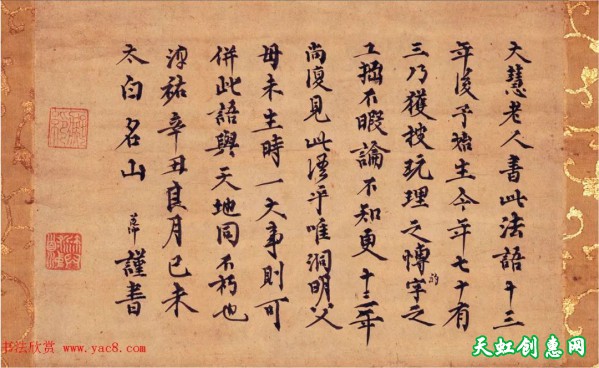 大慧老人書此法語十三
年後予始生今年七十有
三乃獲披玩理之慱的字之
工拙不暇論不知更十三年
尚復見此語乎唯洞明父
母未生時一大事則可
併此語與天地同不朽也
淳祐辛丑良月己未
太白名山 道冲 謹書
书法欣赏 www.yac8.com
天虹创惠网